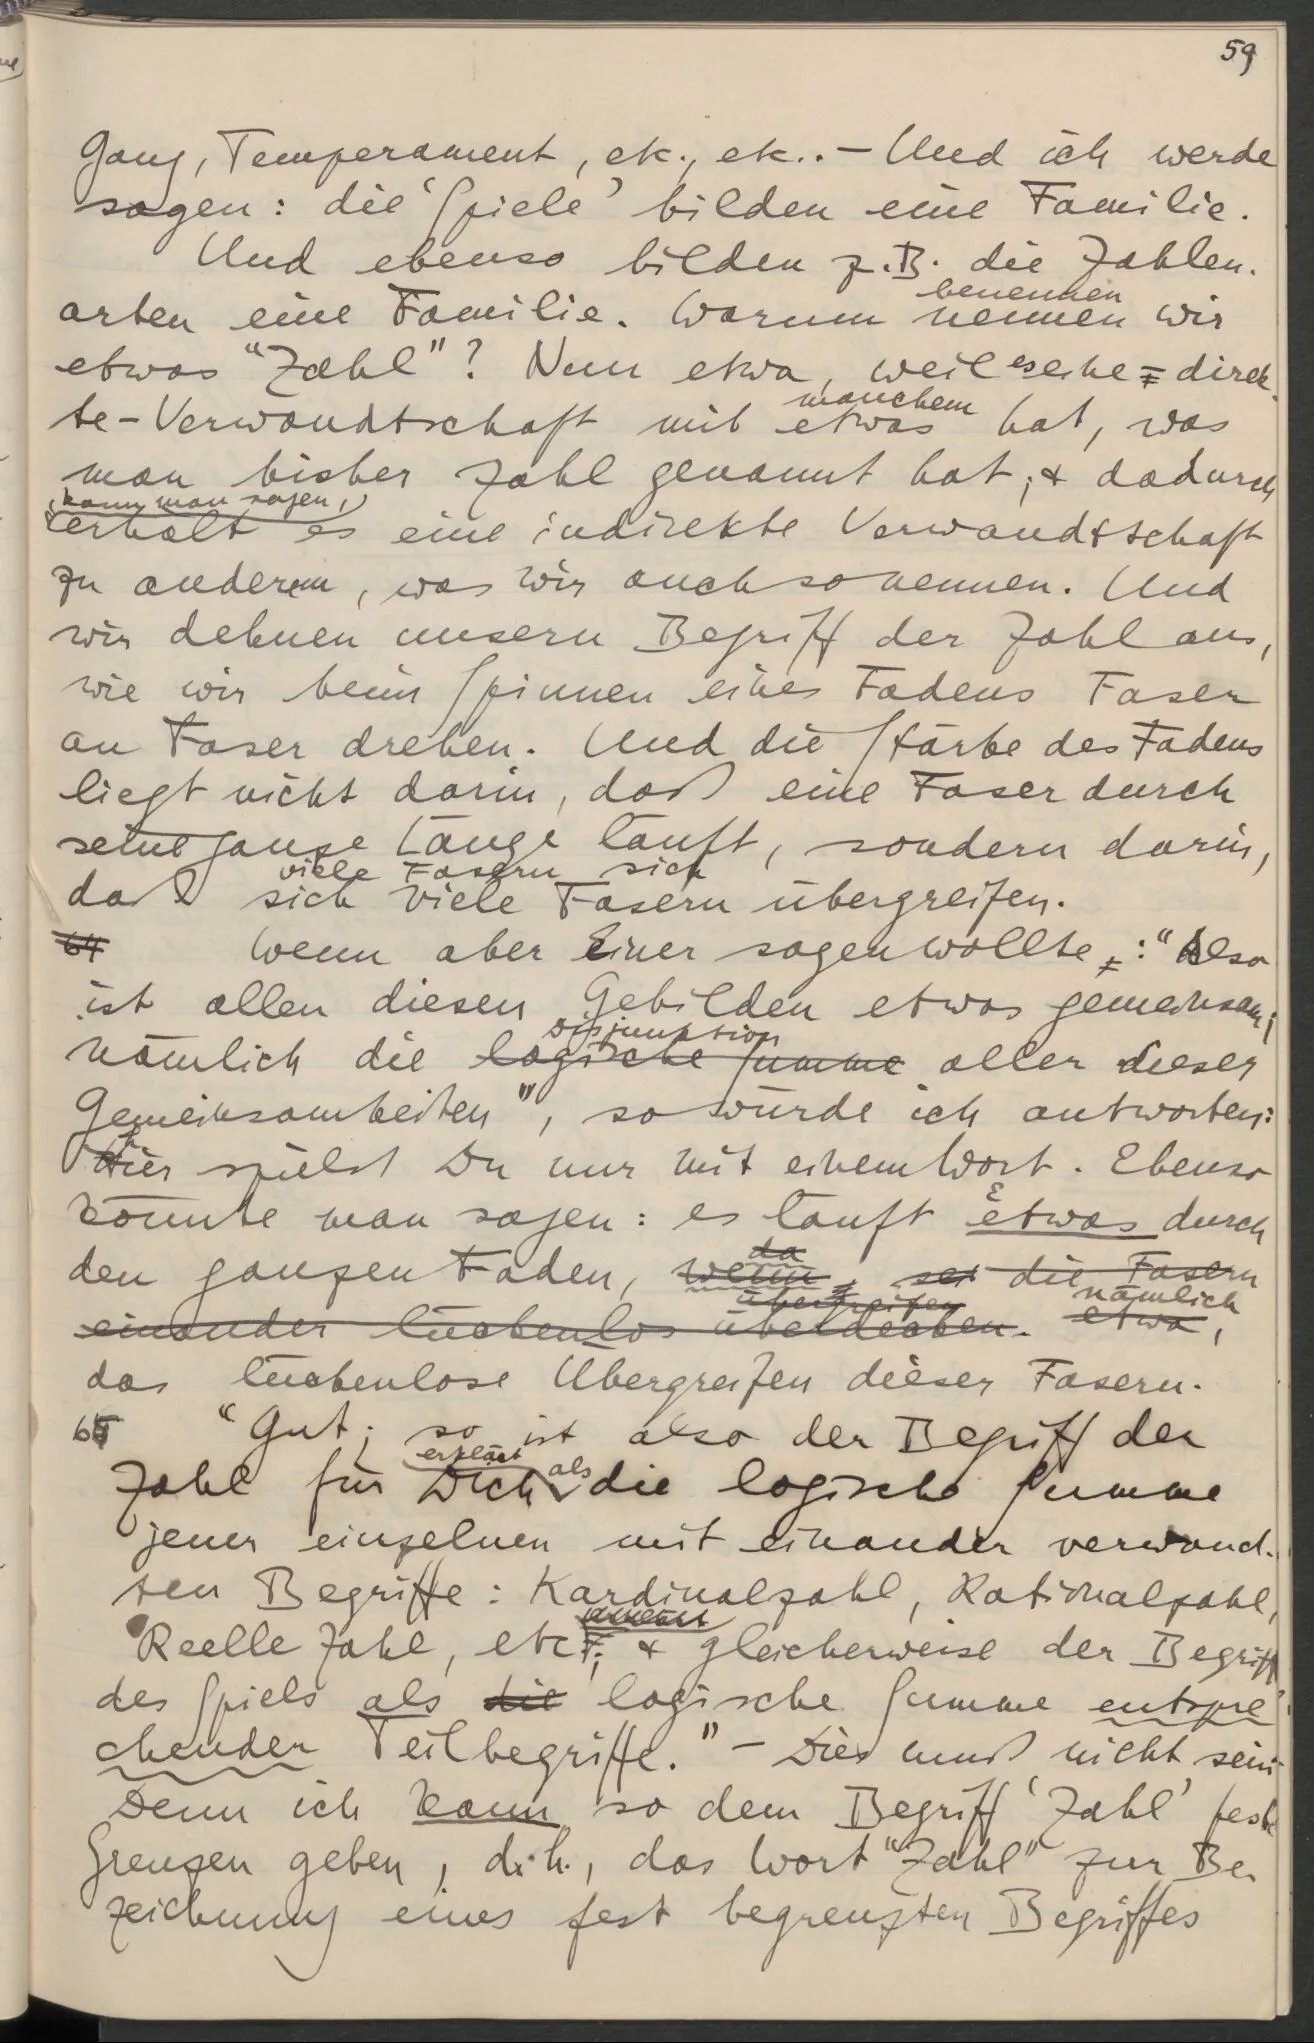 59
Gang, Temperament, etc., etc.. – Und ich werde
sagen: die ‘Spiele’ bilden eine Familie.
Und ebenso bilden z.B. die Zahlen-
benennen
arten eine Familie. Warum nennen wir
etwas “Zahl”? Nun etwa, weil es eine – direk-
manchem
te – Verwandtschaft mit etwas hat, was
man bisher Zahl genannt hat; & dadurch,
kann man sagen,
erhält es eine indirekte Verwandtschaft
zu anderem, was wir auch so nennen. Und
wir dehnen unsern Begriff der Zahl aus,
wie wir beim Spinnen eines Fadens Faser
an Faser drehen. Und die Stärke des Fadens
liegt nicht darin, daß eine Faser durch
seine ganze Länge läuft, sondern darin,
viele Fasern sich
daß sich viele Fasern übergreifen.
64 Wenn aber Einer sagen wollte: “Also
ist allen diesen Gebilden etwas gemeinsam;
Disjunktion
nämlich die logische Summe aller dieser
Gemeinsamkeiten”, so würde ich antworten:
Hier spielst Du nur mit einem Wort. Ebenso
E
könnte man sagen: es läuft etwas durch
da
den ganzen Faden, wenn die Fasern
übergreifen nämlich
einander lückenlos überdecken. etwa,
das lückenlose Übergreifen dieser Fasern.
65 “Gut; so ist also der Begriff der
erklärt als
Zahl für Dich die logische Summe
jener einzelnen mit einander verwand-
ten Begriffe: Kardinalzahl, Rationalzahl,
Reelle Zahl, etc; & gleicherweise der Begriff
des Spiels als die logische Summe entspre-
chender Teilbegriffe.” – Dies muß nicht sein.
Denn ich kann so dem Begriff ‘Zahl’ feste
Grenzen geben, d.h., das Wort “Zahl” zur Be-
zeichnung eines fest begrenzten Begriffes